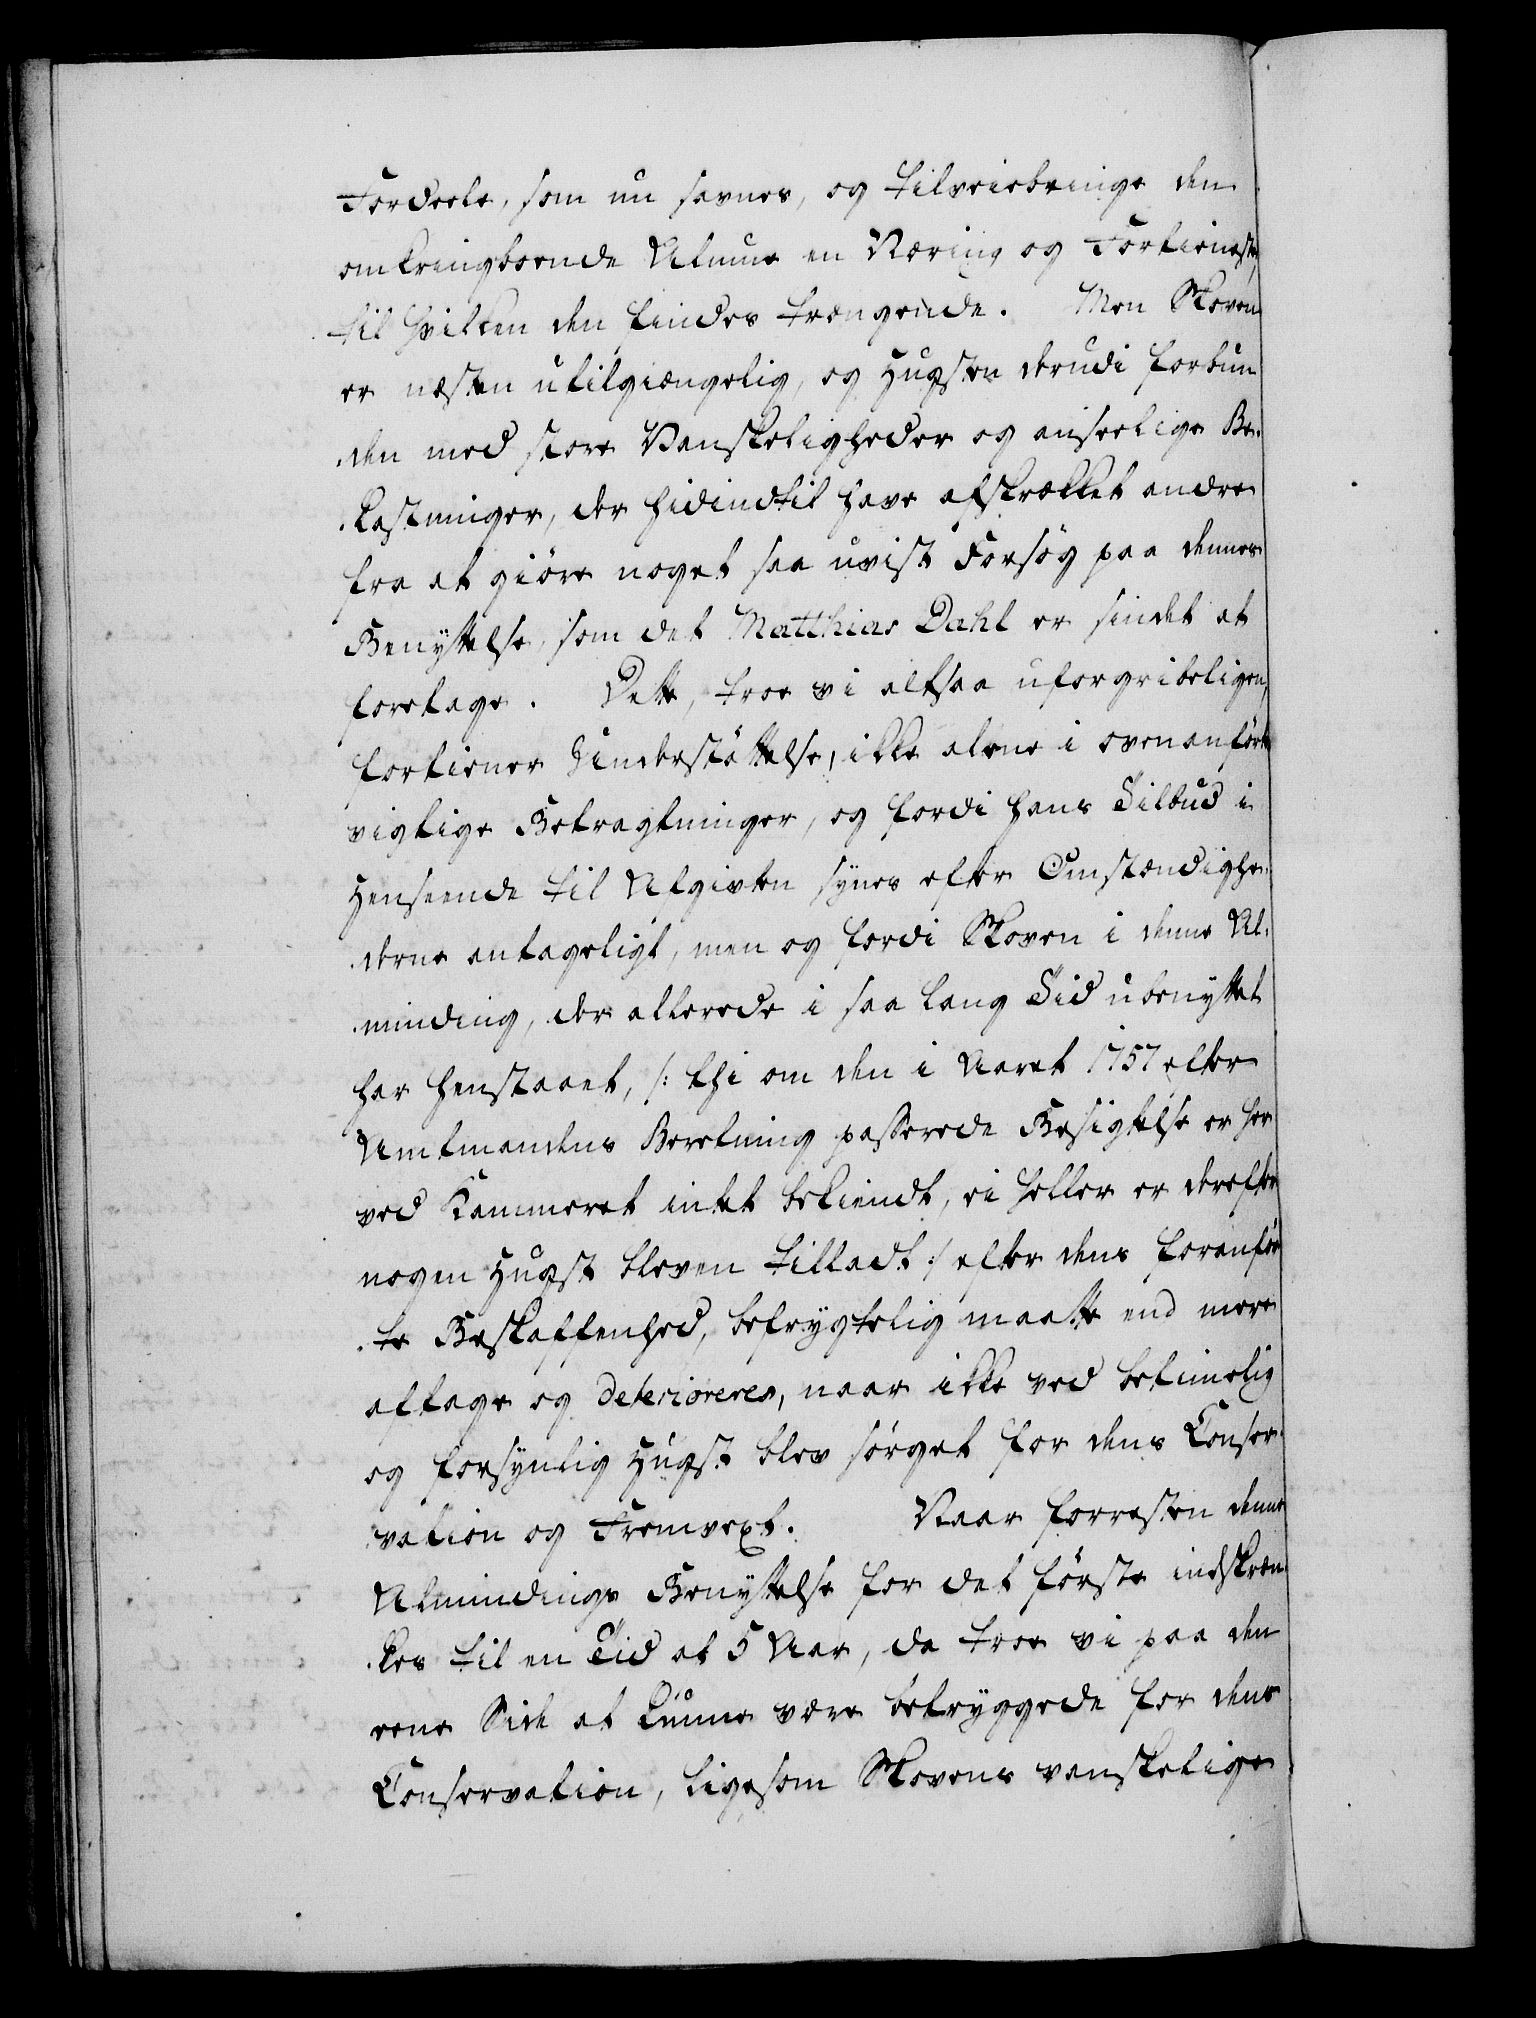 Fordeele, som nu savnes, og tilveiebringe den
omkringboende Almue en Næring og Fortieneste,
til hvilken den findes trængende. Men Skoven
er næsten utilgiængelig, og Hugsten derudi forbun
den med store Vanskeligheder og anseelige Be-
kostninger, der hidindtil have afskrækket andre
fra at giöre noget saa uvist Forsög paa dennes
Benyttelse, som det Matthias Dahl er sindet at
foretage. Dette, troe vi altsaa uforgribeligen,
fortiener Understöttelse, ikke alene i ovenanförte
vigtige Betragtninger, og fordi hans Tilbud i
Henseende til Afgivten synes efter Omstændighe-
derne antageligt, men og fordi Skoven i denne Al-
minding, der allerede i saa lang Tid ubenyttet
har henstaaet, /: thi om den i Aaret 1757 efter
Amtmandens Beretning passerede Besigtelse er her
ved Kammeret intet bekiendt, ei heller er derefter
nogen Hugst bleven tilladt :/ efter dens foranför
te Beskaffenhed, befrygtelig maatte end mere
aftage og deterioreres, naar ikke ved betimelig
og forsynlig Hugst blev sörget for dens Conser-
vation og Fremvext. Naar forresten denne
Almindings Benyttelse for det förste indskræn
kes til en Tid af 5 Aar, da troe vi paa den
eene Side at kunne være betryggede for dens
Conservation, ligesom Skovens vanskelige